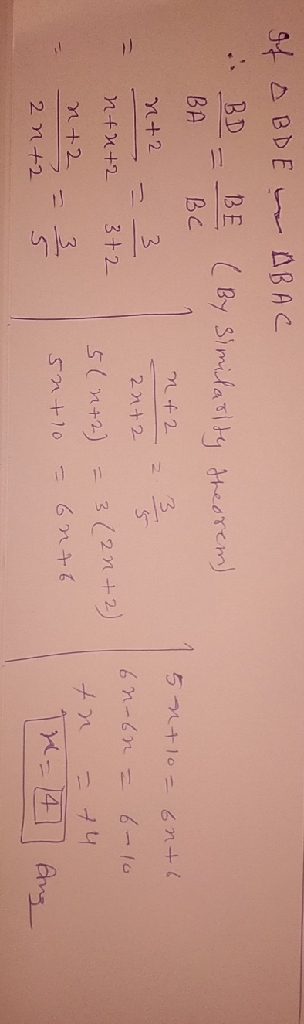 If △ BDE ~ △BAC
∴ BD/BA = BE/BC (By Similarity theorem)
= n+2/n+n+2 = 3/3+2
= n+2/2n+2 = 3/5
n+2/2n+2 = 3/5
5(n+2) = 3(2n+2)
5n+10 = 6n+6
5n+10 = 6n+6
6n-6n = 6-10
+n = +4
n = 4 Ans